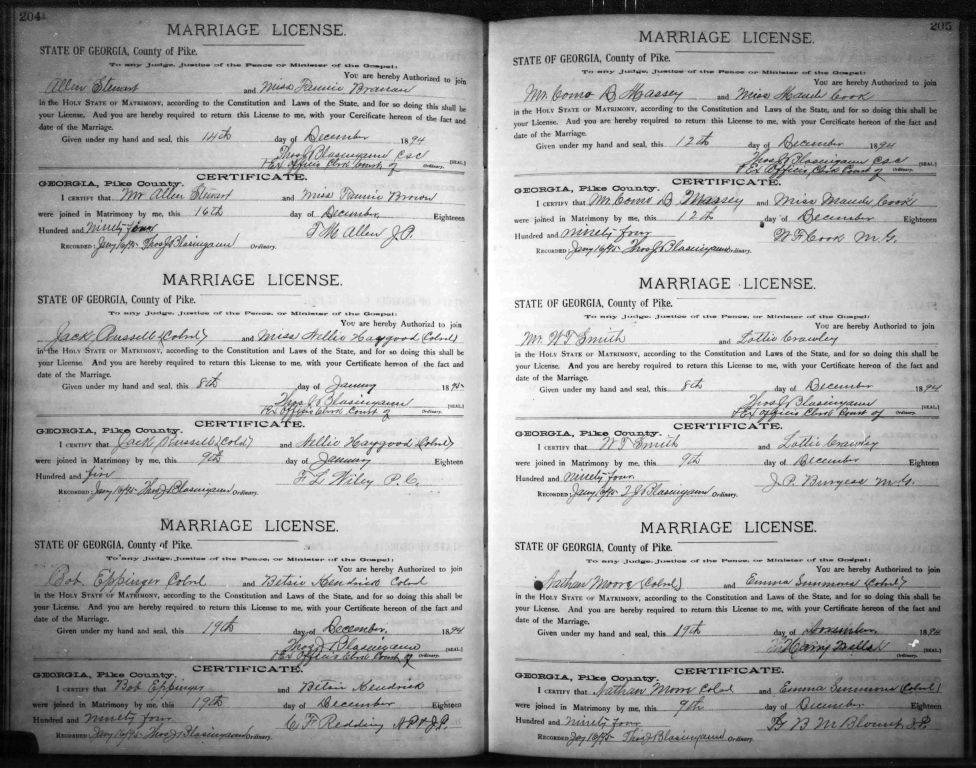 204
MARRIAGE LICENSE.
STATE OF GEORGIA, County of Pike.
To any Judge, Justice of the Peace or Minister of the Gospel:
You are hereby Authorized to join
Allen Stewart and Miss Fannie
in the HOLY STATE OF MATRIMONY, according to the Constitution and Laws of the State, and for so doing this shall be
your License. And you are hereby required to return this License to me, with your Certificate hereon of the fact and
date of the Marriage.
Given under my hand and seal, this 14th day of December 1894
Thos J Blasingame CSC [SEAL.]
& Ex Officio Clerk Court of Ordinary.
CERTIFICATE.
GEORGIA, Pike County.
I CERTIFY that Mr Allen Stewart and Miss Fannie Brown
were joined in Matrimony by me, this 16th day of December Eighteen
Hundred and ninety four T M Allen J.P.
RECORDED: Jany 16/95 Thos J Blasingame Ordinary.
MARRIAGE LICENSE.
STATE OF GEORGIA, County of Pike.
To any Judge, Justice of the Peace, or Minister of the Gospel:
You are hereby Authorized to join
Jack Russell (Colord) and Miss Nellie Haygood (Colord)
in the HOLY STATE OF MATRIMONY, according to the Constitution and Laws of the State, and for so doing this shall be
your License. And you are hereby required to return this License to me, with your Certificate hereon of the fact and
date of the Marriage.
Given under my hand and seal, this 8th day of January 1895
Thos J Blasingame [SEAL.]
& Ex Officio Clerk Court of Ordinary.
CERTIFICATE.
GEORGIA, Pike County.
I CERTIFY that Jack Russell (Cold) and Nellie Haygood (Colord)
were joined in Matrimony by me, this 9th day of January Eighteen
Hundred and five F L Wiley P. C.
RECORDED: Jany 16/95 Thos J Blasingame Ordinary.
MARRIAGE LICENSE.
STATE OF GEORGIA, County of Pike.
To any Judge, Justice of the Peace, or Minister of the Gospel:
You are hereby Authorized to join
Bob Eppinger Colord and Betsie Kendrick Colord
in the HOLY STATE OF MATRIMONY, according to the Constitution and Laws of the State, and for so doing this shall be
your License. And you are hereby required to return this License to me, with your Certificate hereon of the fact and
date of the Marriage.
Given under my hand and seal, this 19th day of December 1894
Thos J Blasingame [SEAL.]
& Ex Officio Clerk Court of Ordinary.
CERTIFICATE.
GEORGIA, Pike County.
I CERTIFY that Bob Eppinger and Betsie Kendrick
were joined in Matrimony by me, this 19th day of December Eighteen
Hundred and ninety four C F Redding N.P. & J.P.
RECORDED: Jany 16/95 Thos J Blasingame Ordinary.
205
MARRIAGE LICENSE.
STATE OF GEORGIA, County of Pike.
To any Judge, Justice of the Peace or Minister of the Gospel:
You are hereby Authorized to join
Mr. Como B Massey and Miss Maude Cook
in the HOLY STATE OF MATRIMONY, according to the Constitution and Laws of the State, and for so doing this shall be
your License. And you are hereby required to return this License to me, with your Certificate hereon of the fact and
date of the Marriage.
Given under my hand and seal, this 12th day of December 1894
Thos J Blasingame CSC [SEAL.]
& Ex Officio Clerk Court of Ordinary.
CERTIFICATE.
GEORGIA, Pike County.
I CERTIFY that Mr. Como B Massey and Miss Maude Cook
were joined in Matrimony by me, this 12th day of December Eighteen
Hundred and ninety four W F Cook M.G.
RECORDED: Jany 16/95 Thos J Blasingame Ordinary.
MARRIAGE LICENSE.
STATE OF GEORGIA, County of Pike.
To any Judge, Justice of the Peace, or Minister of the Gospel:
You are hereby Authorized to join
Mr. W T Smith and Lottie Crawley
in the HOLY STATE OF MATRIMONY, according to the Constitution and Laws of the State, and for so doing this shall be
your License. And you are hereby required to return this License to me, with your Certificate hereon of the fact and
date of the Marriage.
Given under my hand and seal, this 8th day of December 1894
Thos J Blasingame [SEAL.]
& Ex Officio Clerk Court of Ordinary.
CERTIFICATE.
GEORGIA, Pike County.
I CERTIFY that W T Smith and Lottie Crawley
were joined in Matrimony by me, this 9th day of December Eighteen
Hundred and ninety four J. P. Burgess M.G.
RECORDED: Jany 16/95 T J Blasingame Ordinary.
MARRIAGE LICENSE.
STATE OF GEORGIA, County of Pike.
To any Judge, Justice of the Peace, or Minister of the Gospel:
You are hereby Authorized to join
Nathan Moore (Colord) and Emma Simmons (Colord)
in the HOLY STATE OF MATRIMONY, according to the Constitution and Laws of the State, and for so doing this shall be
your License. And you are hereby required to return this License to me, with your Certificate hereon of the fact and
date of the Marriage.
Given under my hand and seal, this 19th day of November 1894
Harry [SEAL.]
Ordinary.
CERTIFICATE.
GEORGIA, Pike County.
I CERTIFY that Nathan Moore Colord and Emma Simmons (Colord)
were joined in Matrimony by me, this 9th day of December Eighteen
Hundred and ninety four B M Blount J.P.
RECORDED: Jany 16/95 Thos J Blasingame Ordinary.